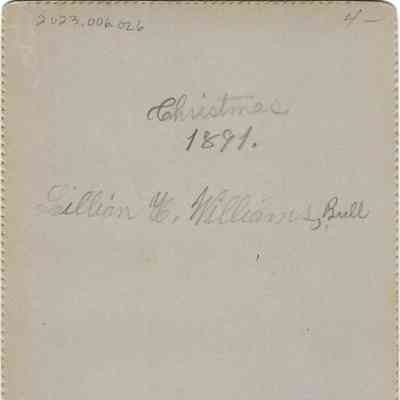 2023.006.026
4-
Christmas
1891.
Lillian H. Williams, Bull